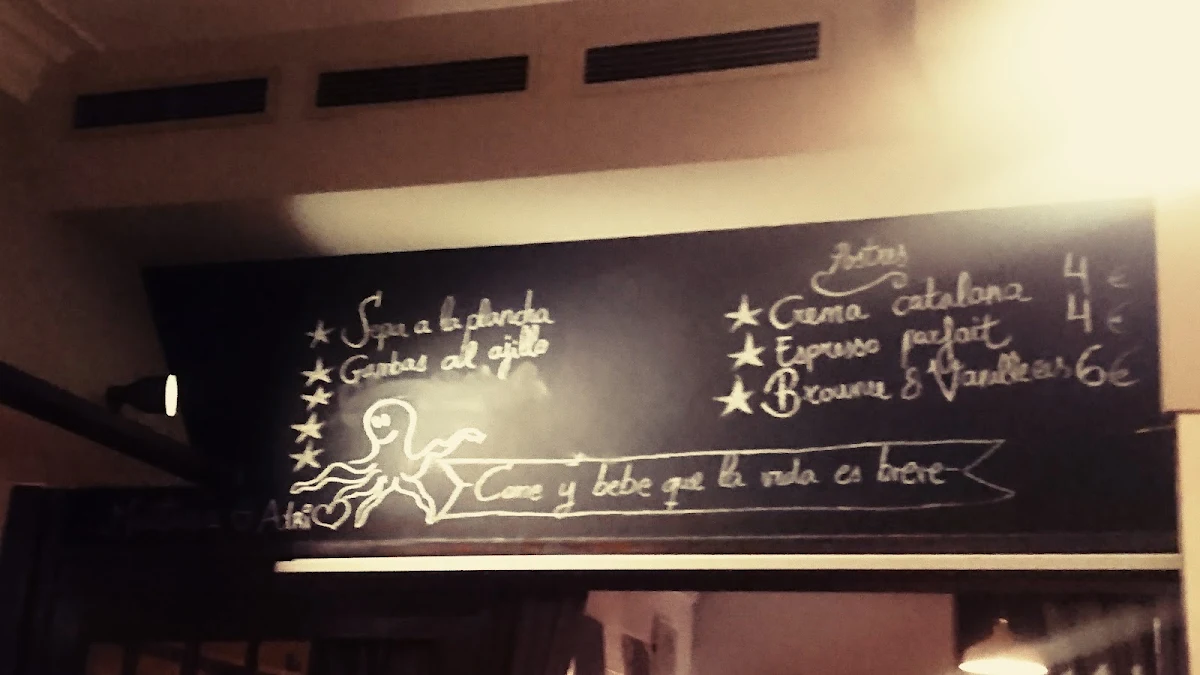 Sepia a la plancha
Gambas al ajillo
Postres
Crema catalana 4 €
Espresso parfait 4 €
Brownie & Vanilleeis 6€
Come y bebe que la vida es breve
Adri